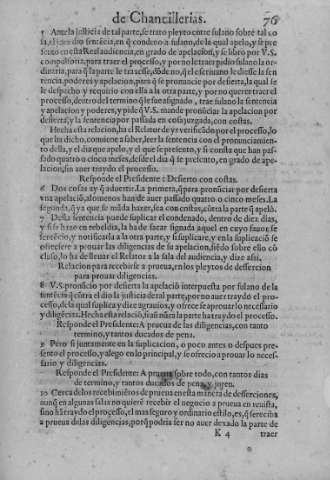 de Chancillerias. 76
5 Ante la justicia de tal parte, se trato pleyto entre fulano sobre tal co
sa, el qual dio sentēcia, en q̄ condeno a fulano, de la qual apelo, y se pre
sento en esta Real audiencia, en grado de apelacion, y se libro por V. S.
compulsoria, para traer el processo, y por no le traer pidio fulano la or
dinaria, para q̄ la parte le traxesse, dōde no, q̄ el escriuano le diesse la sen
tencia, poderes y apelacion, para q̄ se pronuncie por desierta, la qual se
le despacho y requirio con ella a la otra parte, y por no querer traer el
processo, dentro del termino q̄ le fue asignado, trae fulano la sentencia
y apelacion y poderes, y pide q̄ V. S. mande pronūciar la apelacion por
desierta, y la sentencia por passada en cosa juzgada, con costas.
Hecha esta relacion, ha el Relator de yr verificādo por el processo, lo
que ha dicho, conuiene a saber, leer la sentencia con el pronunciamien-
to della, y el dia que apelo, y el que se presento, y si consta que han pas-
sado quatro o cinco meses, desde el dia q̄ se presento, en grado de ape-
lacion, sin auer traydo el processo.
Responde el Presidente: Desierto con costas.
6 Dos cosas ay q̄ aduertir. La primera, q̄ para pronūciar por desierta
vna apelaciō, alomenos han de auer passado quatro o cinco meses. La
segunda, q̄ ya que se māda hazer, sea con costas, cōtra la parte q̄ apelò.
7 Desta sentencia puede suplicar el condenado, dentro de diez dias,
y si se hizo en rebeldia, la ha de sacar signada aquel en cuyo fauor se
dio, y notificarla a la otra parte, y si suplicare, y en la suplicaciō se
ofreciere a prouar las diligencias de la apelacion, siēdo sobre ello cō
cluso, lo ha de lleuar el Relator a la sala del audiencia, y dize assi.
Relacion para recebirse a prueua, en los pleytos de dessercion
para prouar diligencias.
8 V. S. pronūcio por desierta la apelació interpuesta por fulano de la
sentēcia q̄ cōtra el dio la justicia de tal parte, por no auer traydo el pro-
cesso, de la qual suplica y dize agrauios, y ofrece se a prouar lo necessario
y diligēcias. Hecha esta relaciō, si aū no ha la parte ha traydo el processo.
Responde el Presidente: A prueua de las diligencias, con tanto
termino, y tantos ducados de pena.
9 Pero si juntamente en la suplicacion, o poco antes o despues pre-
sento el processo, y alego en lo principal, y se ofrecio a prouar lo neces-
sario y diligencias.
Responde el Presidente: A prueua sobre todo, con tantos dias
de termino, y tantos ducados de pena, y juren.
10 Cerca de los recebimētos de prueua en esta manera de desserciones,
aunq̄ en algunas salas no quierē recebir el negocio a prueua en reuista,
sino hā traydo el processo, el mas seguro y ordinario estilo, es, q̄ se reciba
a prueua de las diligencias, porq̄ podria ser no auer dexado la parte de
K 4 traer